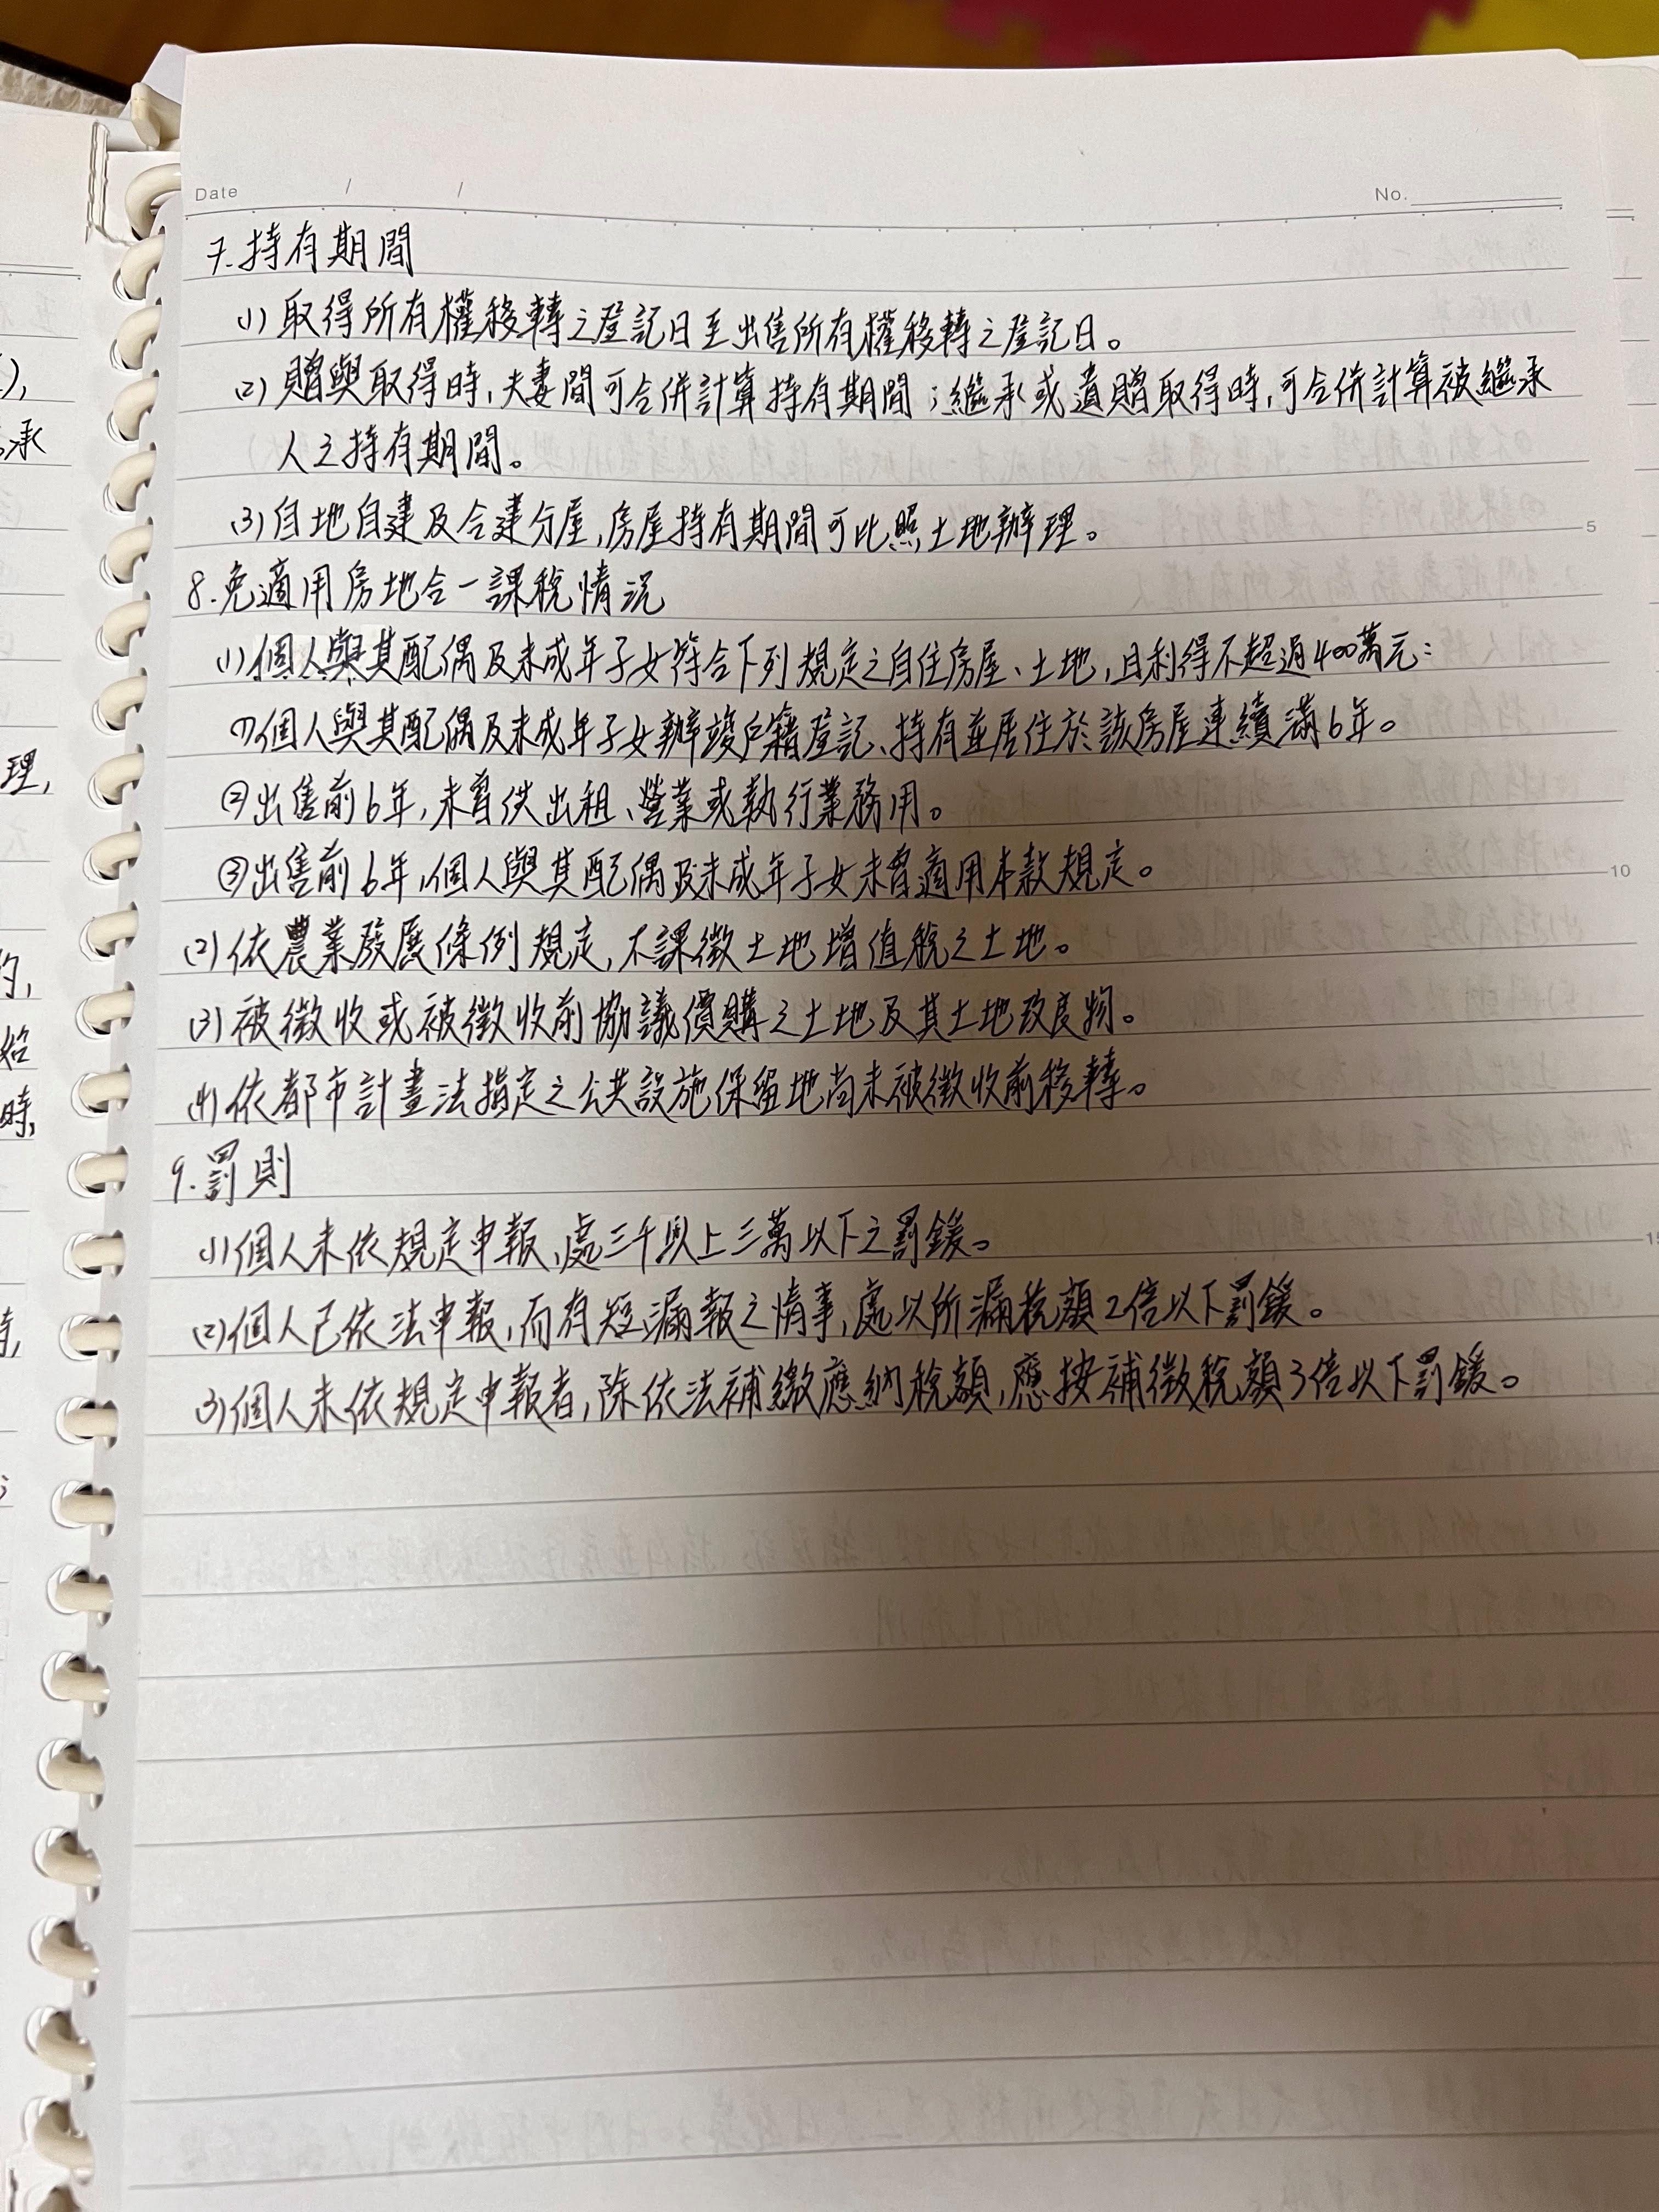 Date / /
No.
7.持有期間
(1)取得所有權移轉之登記日至出售所有權移轉之登記日。
(2)贈與取得時,夫妻間可合併計算持有期間;繼承或遺贈取得時,可合併計算被繼承
人之持有期間。
(3)自地自建及合建分屋,房屋持有期間可比照土地辦理。
5
8.免適用房地合一課稅情況
(1)個人與其配偶及未成年子女符合下列規定之自住房屋、土地,且利得不超過400萬元:
①個人與其配偶及未成年子女辦竣戶籍登記、持有並居住於該房屋連續滿6年。
②出售前6年,未曾供出租、營業或執行業務用。
③出售前6年,個人與其配偶及未成年子女未曾適用本款規定。
10
(2)依農業發展條例規定,不課徵土地增值稅之土地。
(3)被徵收或被徵收前協議價購之土地及其土地改良物。
(4)依都市計畫法指定之公共設施保留地尚未被徵收前移轉。
9.罰則
(1)個人未依規定申報,處三千以上三萬以下之罰鍰。
(2)個人已依法申報,而有短漏報之情事,處以所漏稅額2倍以下罰鍰。
(3)個人未依規定申報者,除依法補繳應納稅額,應按補徵稅額3倍以下罰鍰。